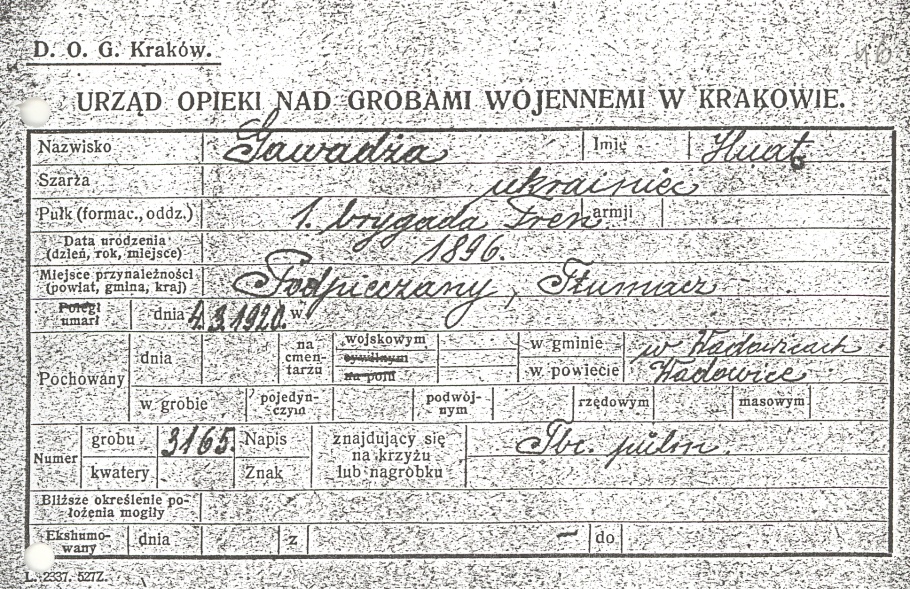 D. O. G. Kraków.
URZĄD OPIEKI NAD GROBAMI WOJENNEMI W KRAKOWIE.
Nazwisko Gawadża Imię Hnat
Szarża ukrainiec
Pułk (formac., oddz.) 1. brygada Tren. armji
Data urodzenia (dzień, rok, miejsce) 1896.
Miejsce przynależności (powiat, gmina, kraj) Podpieczany, Tłumacz
Poległ umarł dnia 4.3.1920. w
Pochowany dnia na cmentarzu wojskowym cywilnym na polu w gminie w Wadowicach
w powiecie Wadowice
w grobie pojedyńczym podwójnym rzędowym masowym
Numer grobu 3165. Napis znajdujący się na krzyżu lub nagrobku Tbc. pulm.
kwatery Znak
Bliższe określenie położenia mogiły
Ekshumowany dnia z – do
L. 2337. 527Z.